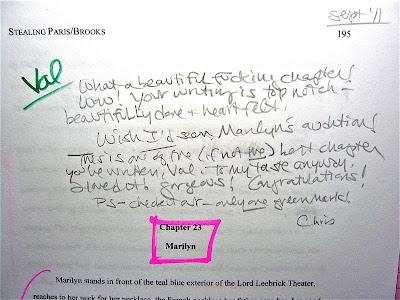 Sept '11
STEALING PARIS/BROOKS
195
Val
What a beautiful fucking chapter!
Wow! Your writing is top notch -
beautifully done + heartfelt.
Wish I'd seen Marilyn's audition!
This is one of the (if not the) best chapter
you've written, Val. To my taste anyway.
Loved it! Gorgeous! Congratulations!
PS - check it out - only one green mark!
Chris
Chapter 23
Marilyn
Marilyn stands in front of the teal blue exterior of the Lord Leebrick Theater,
reaches to her neck for her necklace, the French necklace